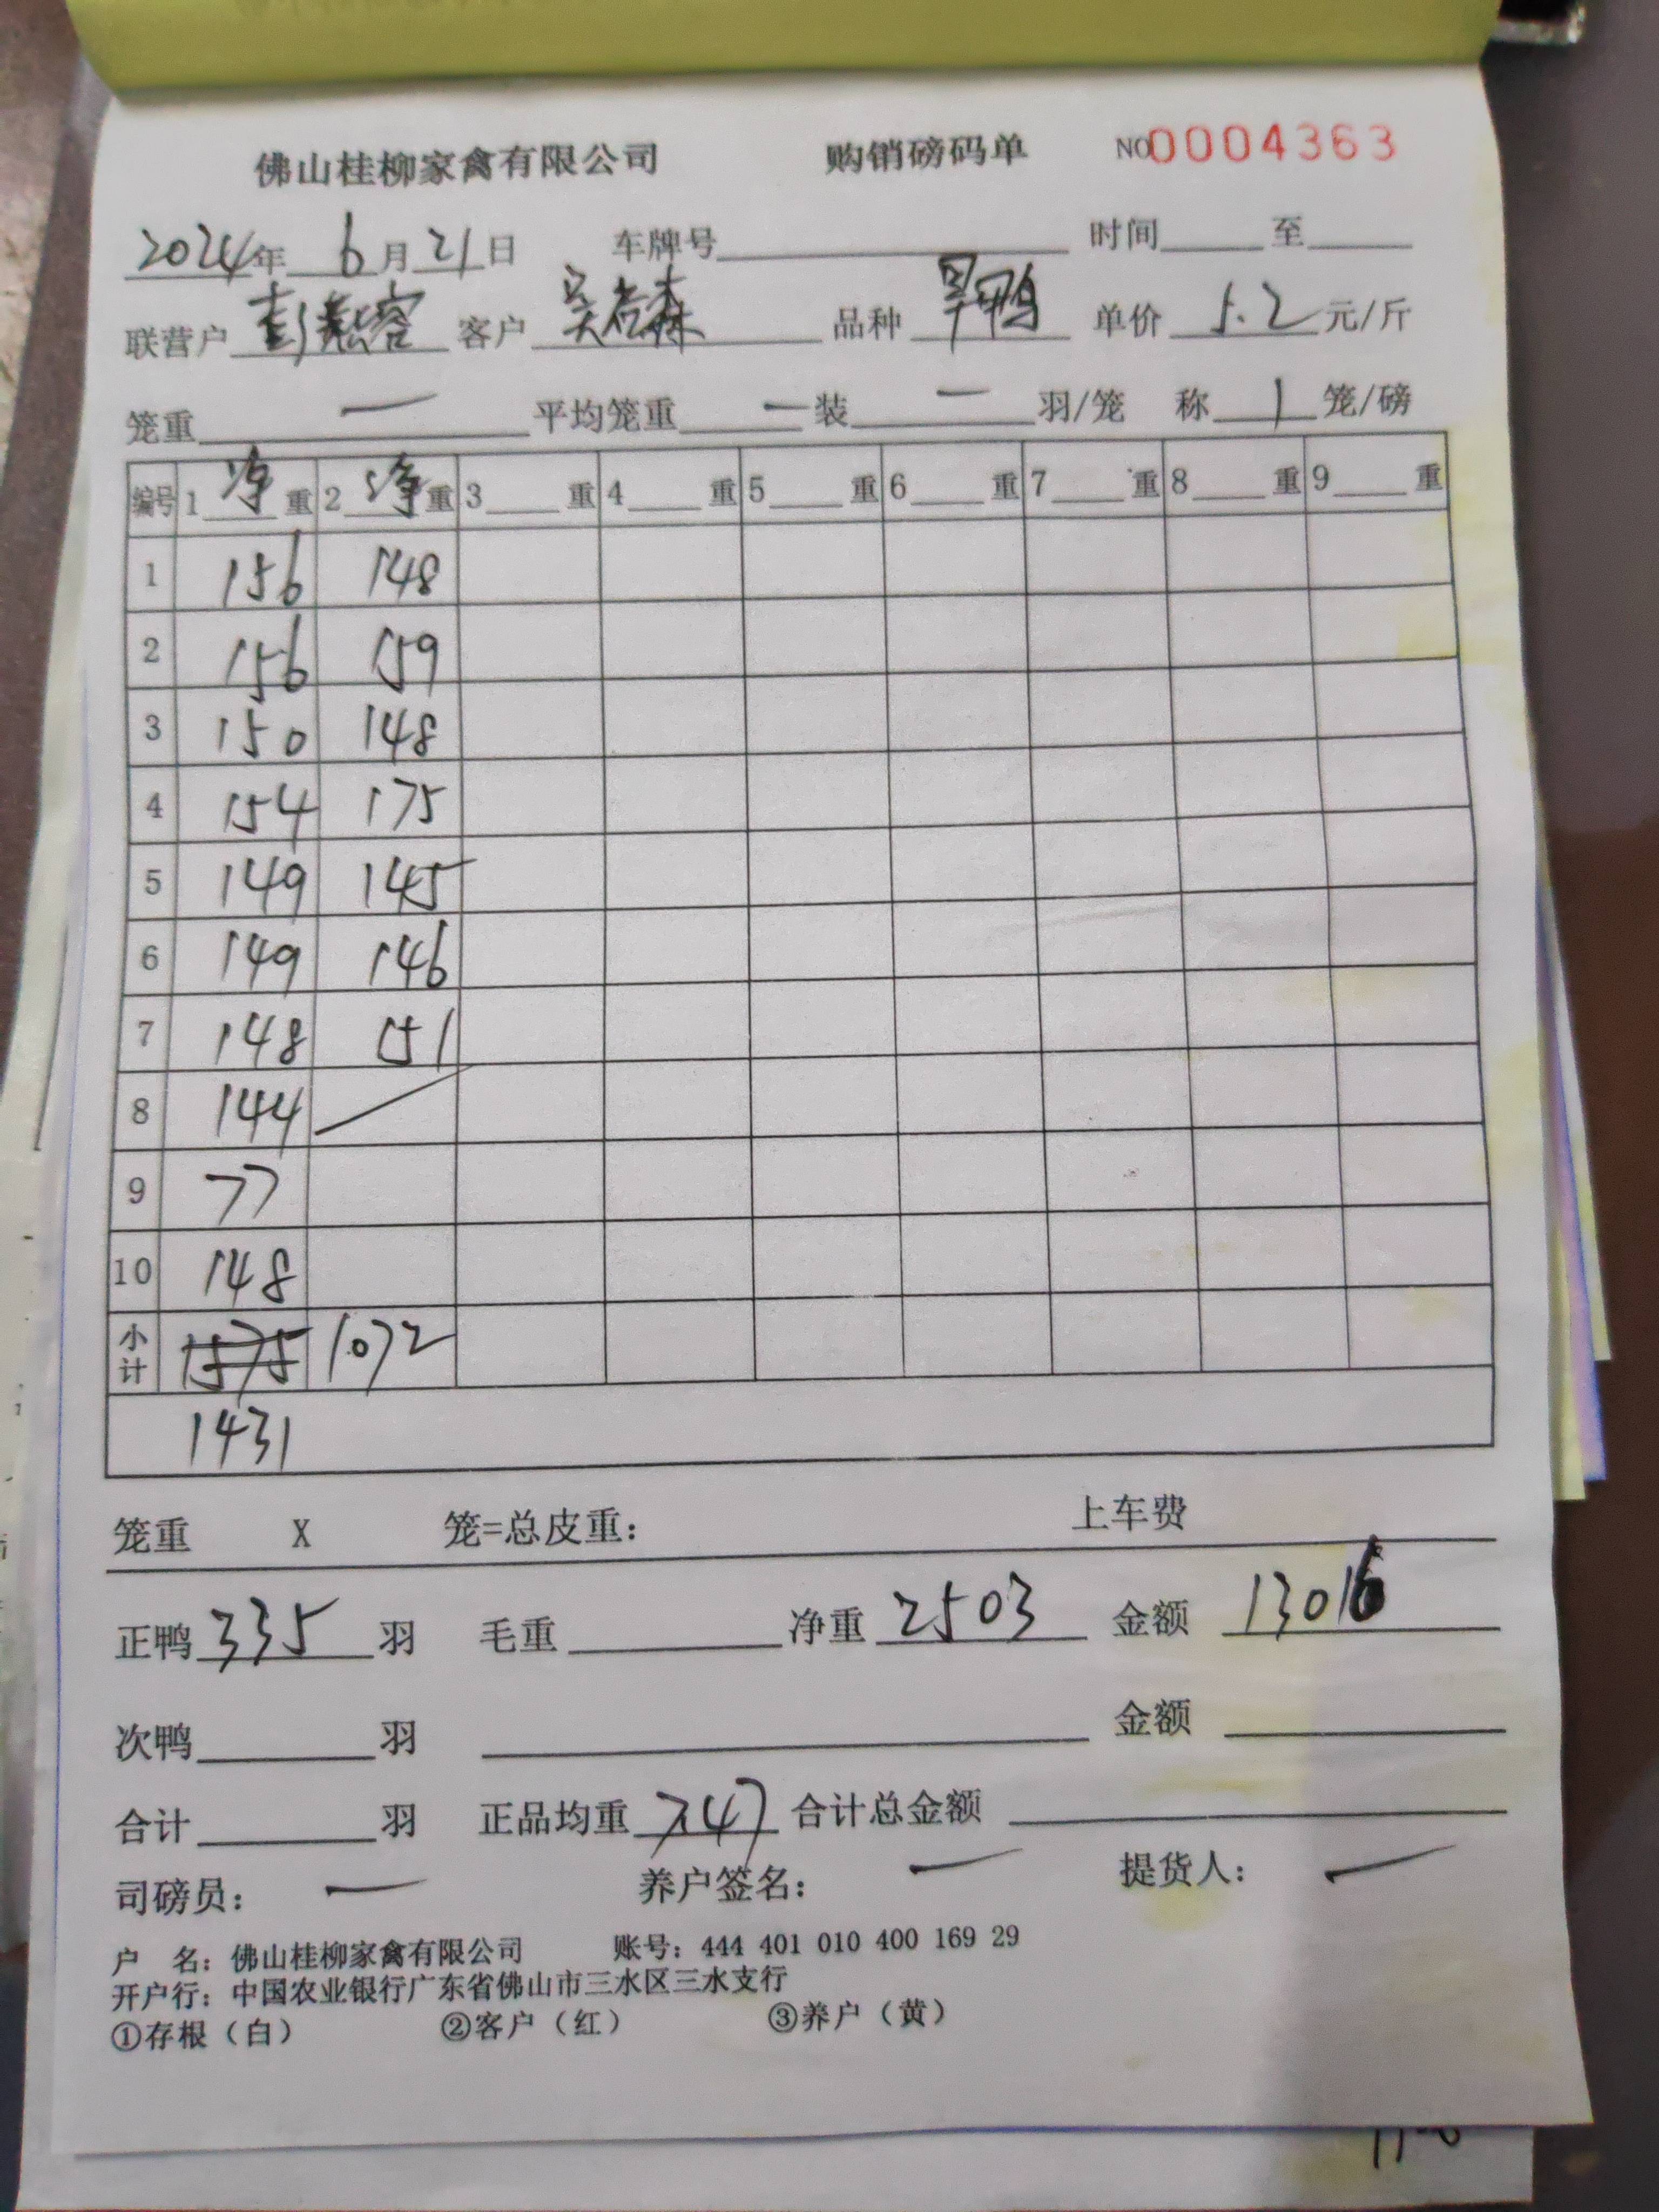 佛山桂柳家禽有限公司 购销磅码单 NO0004363
2024年 6月21日 车牌号 时间 至
联营户 彭燕容 客户 吴 森 品种 旱鸭 单价 5.2 元/斤
笼重 一 平均笼重 一 装 一 羽/笼 称 1 笼/磅
编号 1 净 重 2 净 重 3 重 4 重 5 重 6 重 7 重 8 重 9 重
1 156 148
2 156 159
3 150 148
4 154 175
5 149 145
6 149 146
7 148 151
8 144
9 77
10 148
小计 1575 1072
1431
笼重 X 笼=总皮重： 上车费
正鸭 335 羽 毛重 净重 2503 金额 13016
次鸭 羽 金额
合计 羽 正品均重 7.47 合计总金额
司磅员： 一 养户签名： 一 提货人： 一
户 名：佛山桂柳家禽有限公司 账号：444 401 010 400 169 29
开户行：中国农业银行广东省佛山市三水区三水支行
①存根（白） ②客户（红） ③养户（黄）